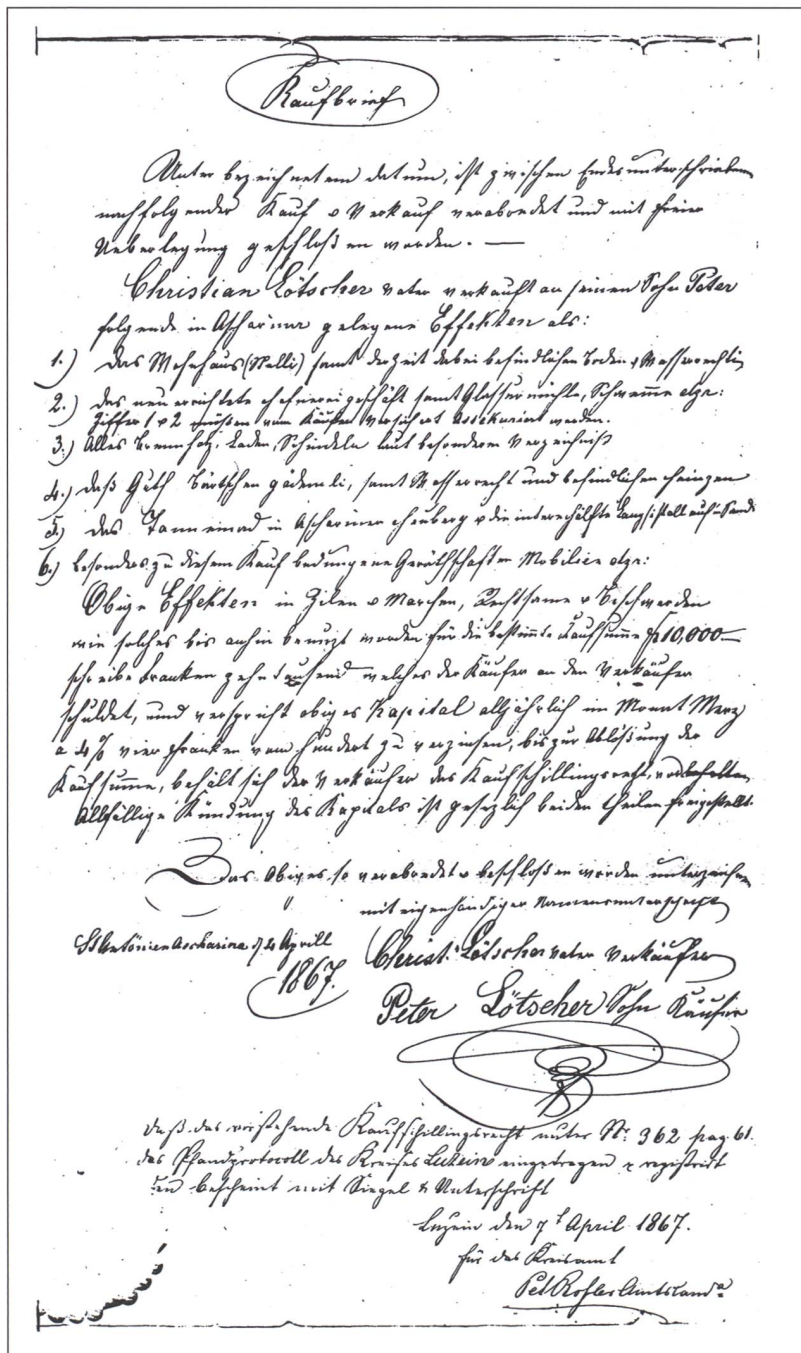 Kaufbrief
Unter bezeichnetem datum, ist zwischen Endesunterschrieben
nachfolgender Kauf & Verkauf verabredet und mit freier
Ueberlegung geschloßen worden. —
Christian Lötscher vater verkauft an seinen Sohn Peter
folgende in Ascharina gelegene Effekten als:
1.) Das Wohnhaus (Stelli) samt derzeit dabei befindlichen Boden & Wasserrechtig
2.) das neu errichtete geschäft samt Glassurmühle, Schwemme etzc:
Ziffer 1 & 2 müßen vom Käufer versichert Assekuriert werden.
3.) Alles Brennholz, Laden, Schindeln laut besonderem Verzeichniß
4.) Daß Guth Bärtschen gädemli, samt Wasserrecht und befindlichen heinzen
5.) Das in Ascharinen & die Stall auf
6.) besonders zu diesem Kauf bedungene Geräthschaften Mobilien etzc:
Obige Effekten in Zilen & Marchen, Rechtsame & Beschwerden
wie solches bis anhin benuzt worden für die bestimmte Kaufsumme fr 10,000—
schreibe Franken zehntausend welches der Käufer an den Verkäufer
schuldet, und verspricht obiges Kapital alljährlich im Monat Merz
a 4% vier Franken vom hundert zu verzinsen, bis zur Ablößung der
Kaufsumme, behält sich der Verkäufer das Kaufschillingsrecht, vorbehalten
Allfällige Kündung des Kapitals ist gesezlich beiden theilen freigestellt.
Das Obiges so verabredet & beschloßen worden unterzeichnen
mit eigenhändiger Namensunterschrift
St Antönien Ascharina d 4 Aprill
1867.
Christ. Lötscher vater Verkäufer
Peter Lötscher Sohn Käufer
Daß das vorstehende Kaufschillingsrecht unter Nr. 362 pag. 61.
das Pfandprotocoll des Kreises Luzein eingetragen & registrirt
bescheint mit Siegel & Unterschrift
Luzein den 7t April 1867.
für das Kreisamt
Pet Kofler Amtsland a